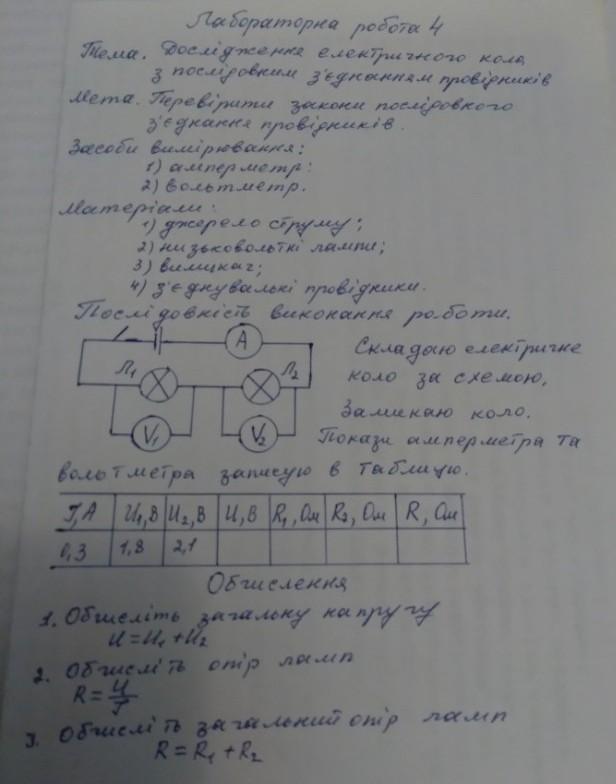 Лабораторна робота 4
Тема. Дослідження електричного кола
з послідовним з'єднанням провідників
Мета. Перевірити закони послідовного
з'єднання провідників.
Засоби вимірювання:
1) амперметр:
2) вольтметр.
Матеріали:
1) джерело струму;
2) низьковольтні лампи;
3) вимикач;
4) з'єднувальні провідники.
Послідовність виконання роботи.
A
Л1 Л2
V1 V2
Складаю електричне
коло за схемою.
Замикаю коло.
Покази амперметра та
вольтметра записую в таблицю.
I, A U1, В U2, В U, В R1, Ом R2, Ом R, Ом
0,3 1,8 2,1
Обчислення
1. Обчисліть загальну напругу
U = U1 + U2
2. Обчисліть опір ламп
R = U/I
3. Обчисліть загальний опір ламп
R = R1 + R2